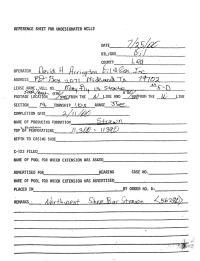 REFERENCE SHEET FOR UNDESIGNATED WELLS
DATE 7/25/00
OIL/GAS Oil
COUNTY Lea
OPERATOR David H Arrington Oil & Gas Inc
ADDRESS PO Box 2071 Midland Tx 79702
LEASE NAME, WELL NO. Mayfly 13 State #5-D
FOOTAGE LOCATION FROM THE N LINE AND FROM THE LINE
SECTION TOWNSHIP 16s RANGE 35e
COMPLETION DATE 2/11/00
NAME OF PRODUCING FORMATION Strawn
TOP OF PERFORATIONS 11,300 - 11380
DEPTH TO CASING SHOE
C-123 FILED
NAME OF POOL FOR WHICH EXTENSION WAS ASKED
ADVERTISED FOR HEARING CASE NO.
NAME OF POOL FOR WHICH EXTENSION WAS ASKED
PLACED IN BY ORDER NO. R-
REMARKS Northwest Shoe Bar Strawn